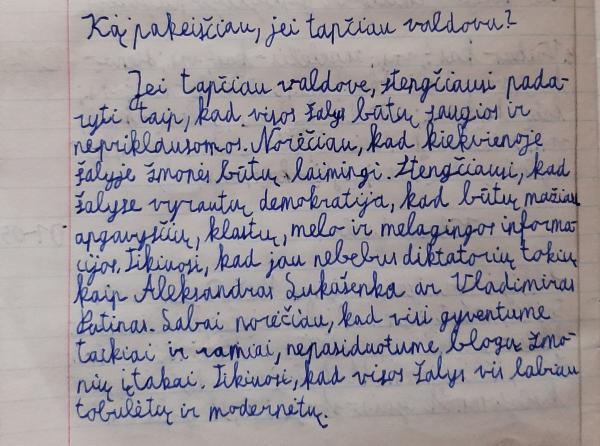 Ką pakeisčiau, jei tapčiau valdovu?
Jei tapčiau valdove, stengčiausi pada-
ryti taip, kad visos šalys būtų saugios ir
nepriklausomos. Norėčiau, kad kiekvienoje
šalyje žmonės būtų laimingi. Stengčiausi, kad
šalyse vyrautų demokratija, kad būtų mažiau
apgavysčių, klastų, melo ir melagingos informa-
cijos. Tikiuosi, kad jau nebebus diktatorių tokių
kaip Aleksandras Lukašenka ar Vladimiras
Putinas. Labai norėčiau, kad visi gyventume
taikiai ir ramiai, nepasiduotume blogų žmo-
nių įtakai. Tikiuosi, kad visos šalys vis labiau
tobulėtų ir modernėtų.